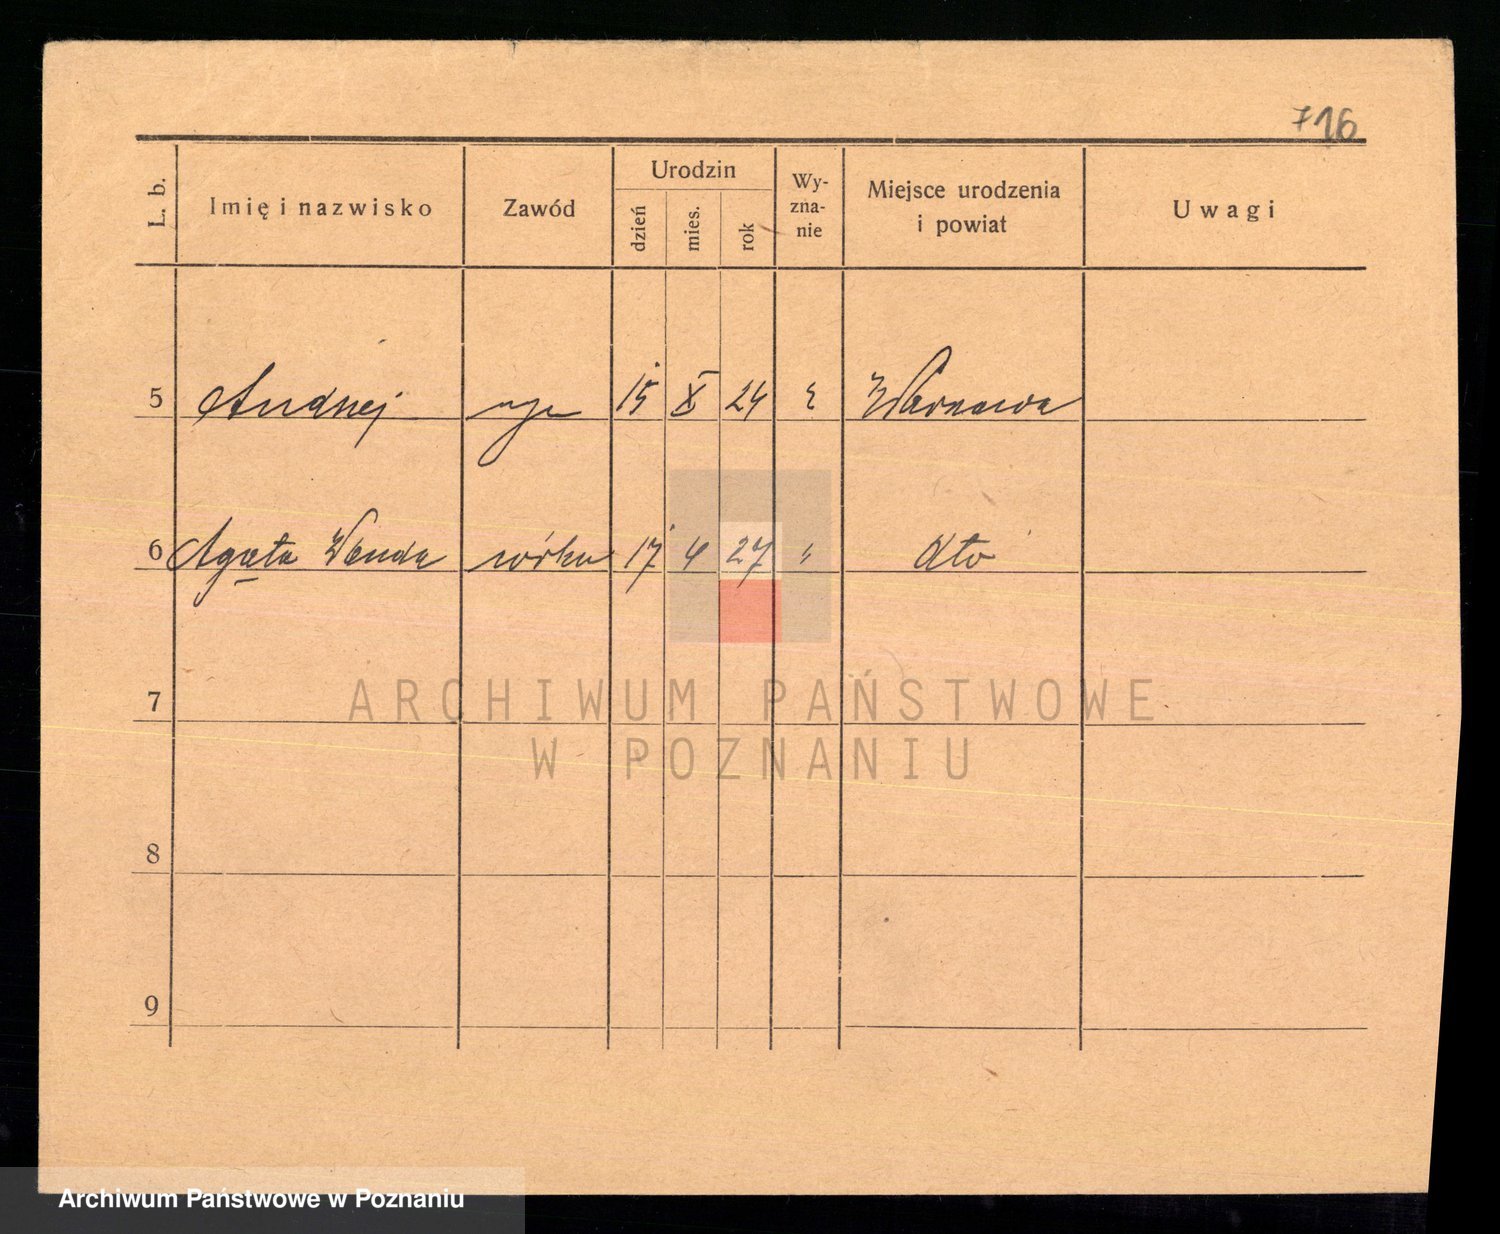 716
L. b. Imię i nazwisko Zawód Urodzin dzień mies. rok Wy-zna-nie Miejsce urodzenia i powiat Uwagi
5 Andrzej 15 X 24 Warszawa
6 Agata Wanda córka 17 4 27 " dto
7
ARCHIWUM PAŃSTWOWE
W POZNANIU
8
9
Archiwum Państwowe w Poznaniu